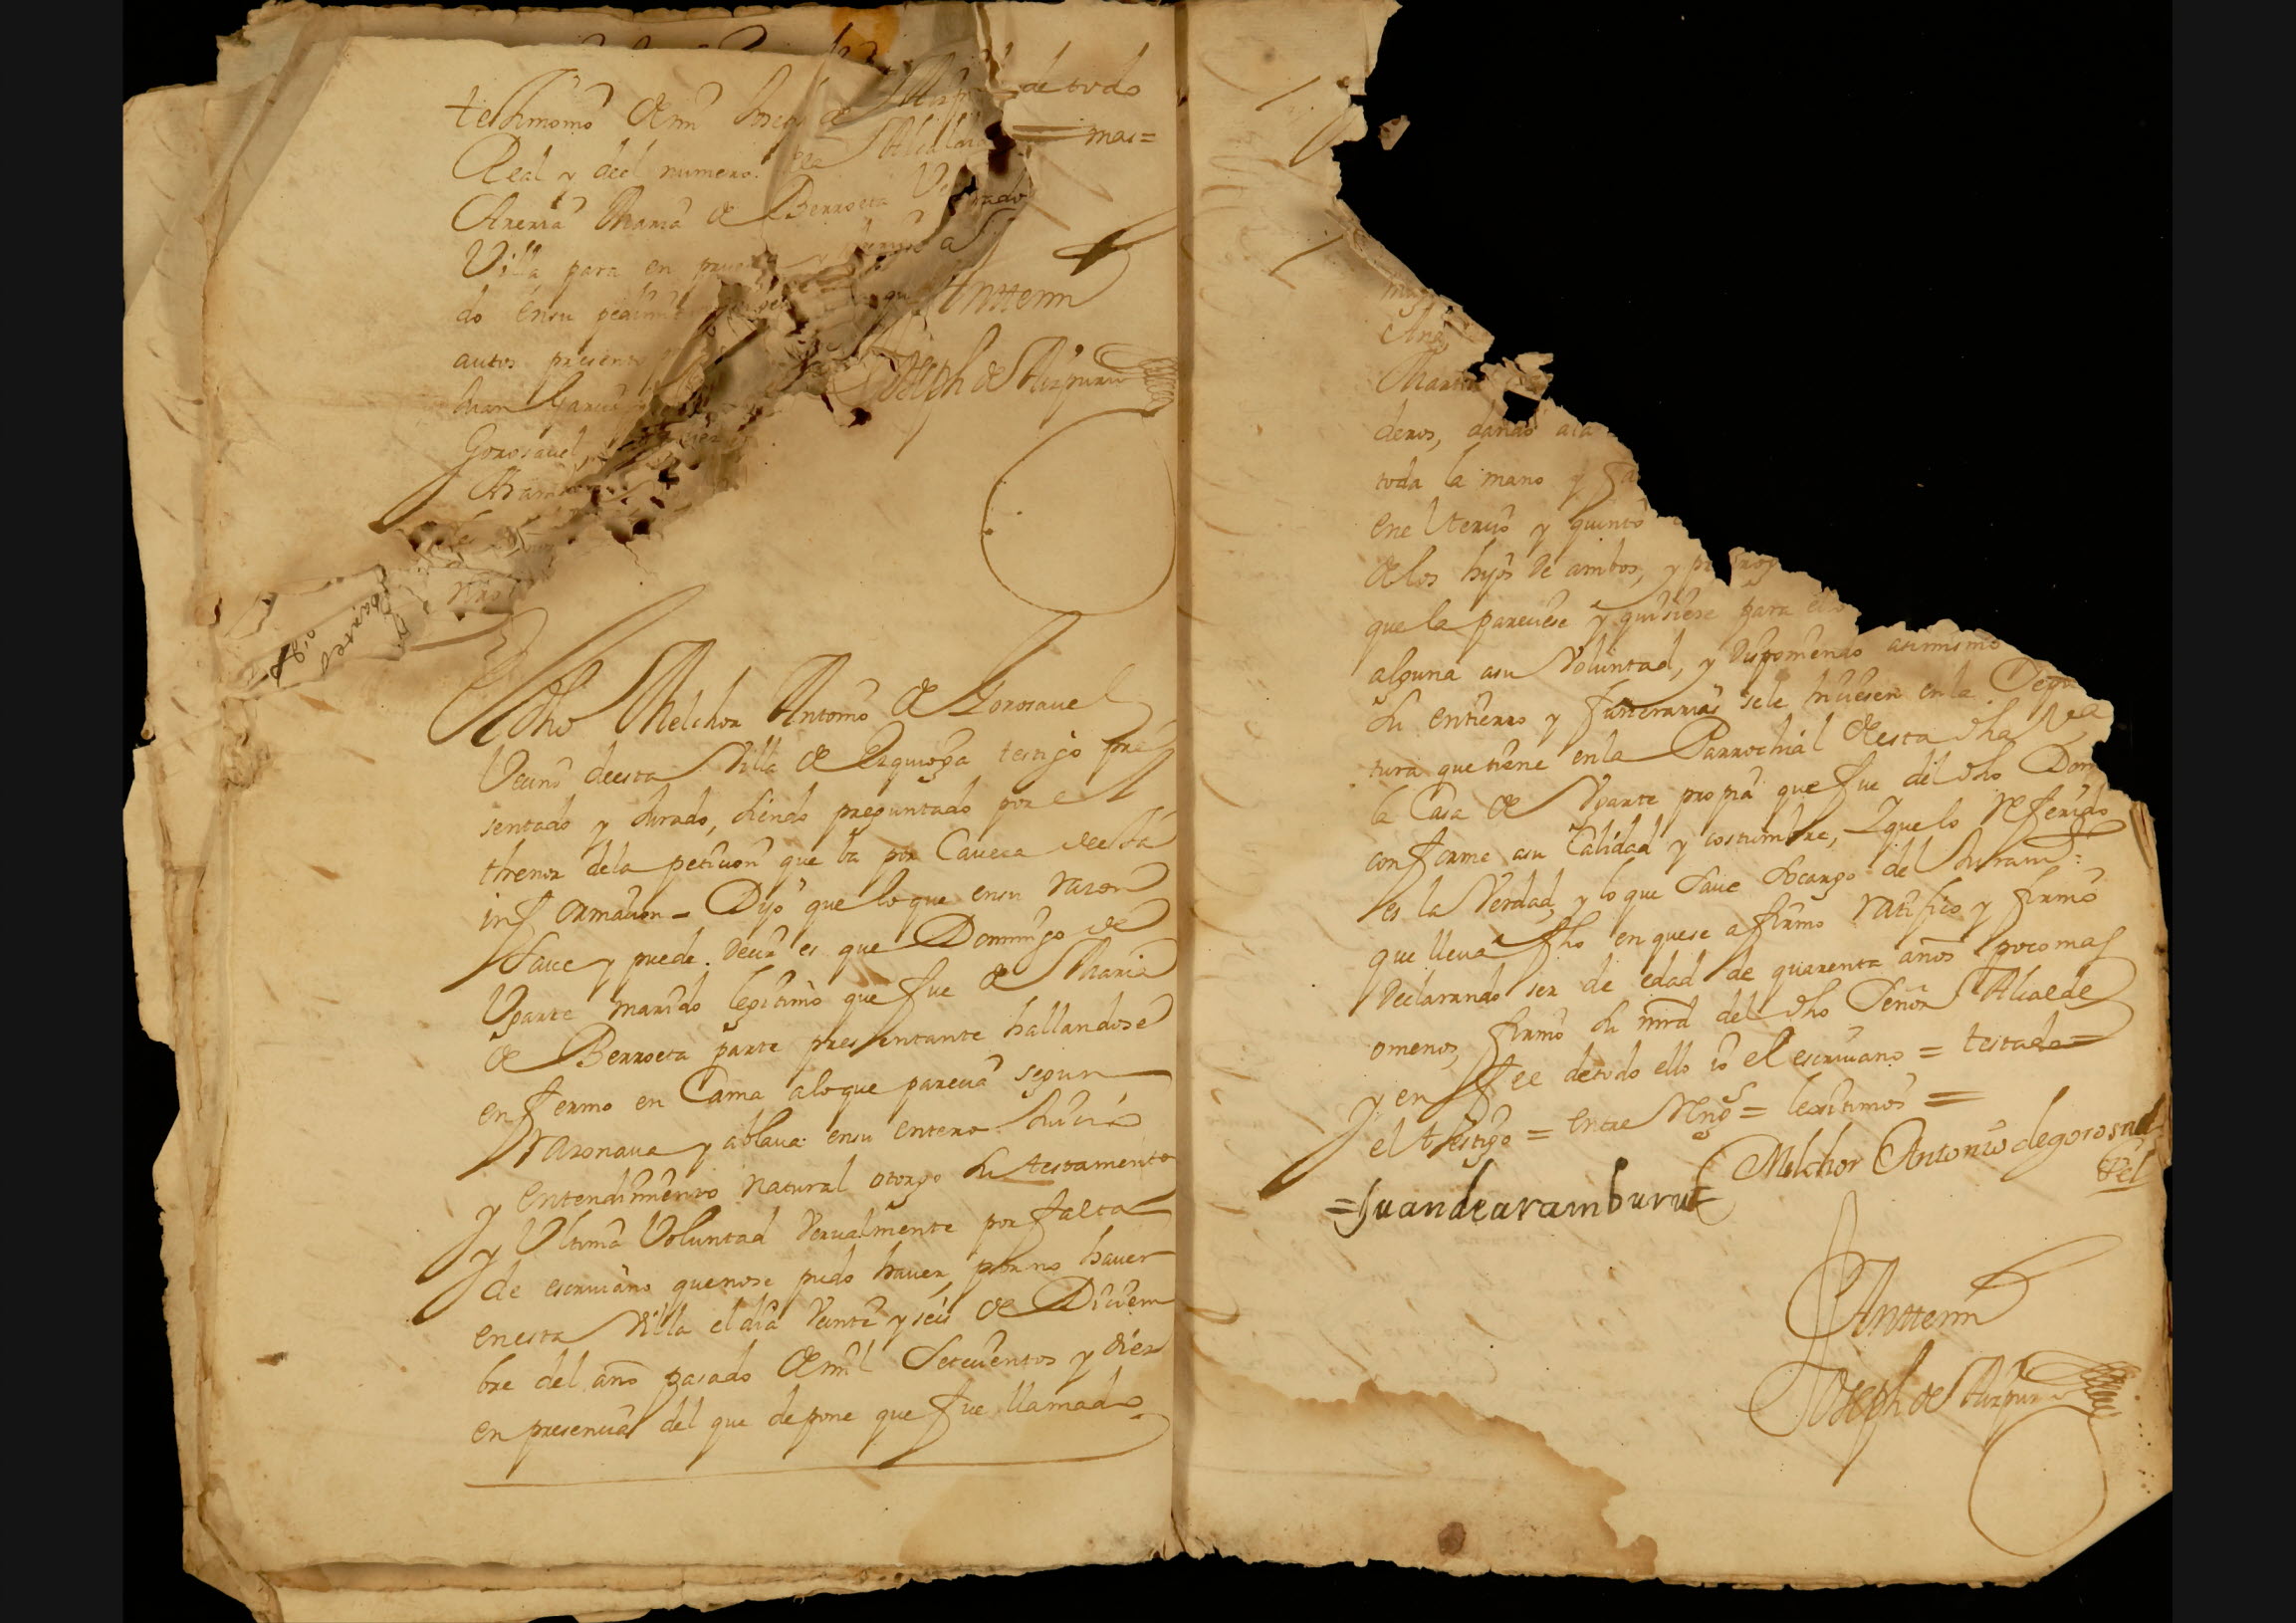 testimonio de mi Joseph de Aizp
Real y del numero dela Alcaldia
Areria Maria de Berroeta Ve
Villa para en prueba
do ensu pedim
autos presento
Juan Garcia
Gorosavel,
Aram
de todo
= mas =
rado
Antemi
Joseph de Aizpuru
El dho Melchor Antonio de Gorosavel
Vecino deesta Villa de Ezquioga testigo pre
sentado y Jurado, siendo preguntado por el
thenor dela peticion que ba por Caveca deesta
informacion = Dijo que lo que ensu razon
save y puede decir es que Domingo de
Vparte marido legitimo que fue de Maria
de Berroeta parte presentante hallandose
enfermo en Cama alo que parecia segun
razonava y ablava ensu entero Juicio
y entendimiento natural otorgo su testamento
y Ultima Voluntad Vervalmente por falta
de escrivano quenose pudo haver, por no haver
enesta Villa el dia Veinte y seis de Diciem
bre del año pasado de mil Setecientos y diez
en presencia del que depone que fue llamado
mug
Ana
Martin
deros, dando ala
toda la mano y fa
enel tercio y quinto
delos hijos de ambos, y prorrog
que la pareciese y quisiese para ello
alguna asu Voluntad, y disponiendo asimismo
su entierro y funerarias sele hiciesen enla Sepul
tura que tiene enla Parrochial deesta dha Va
la Casa de Vparte propia que fue del dho Dom
conforme asu Calidad y costumbre, Y que lo referido
es la Verdad, y lo que save socargo del Juram.to
que lleva fho en quese afirmo ratifico y firmo
Declarando ser de edad de quarenta años poco mas
omenos, firmo su mrd del dho Señor Alcalde
y en fee detodo ello io el escrivano = testado =
el testigo = entre Reng.s = lexitimos =
Melchor Antonio de gorosa
vel
= Juan de aramburu =
Antemi
Joseph de Aizpuru